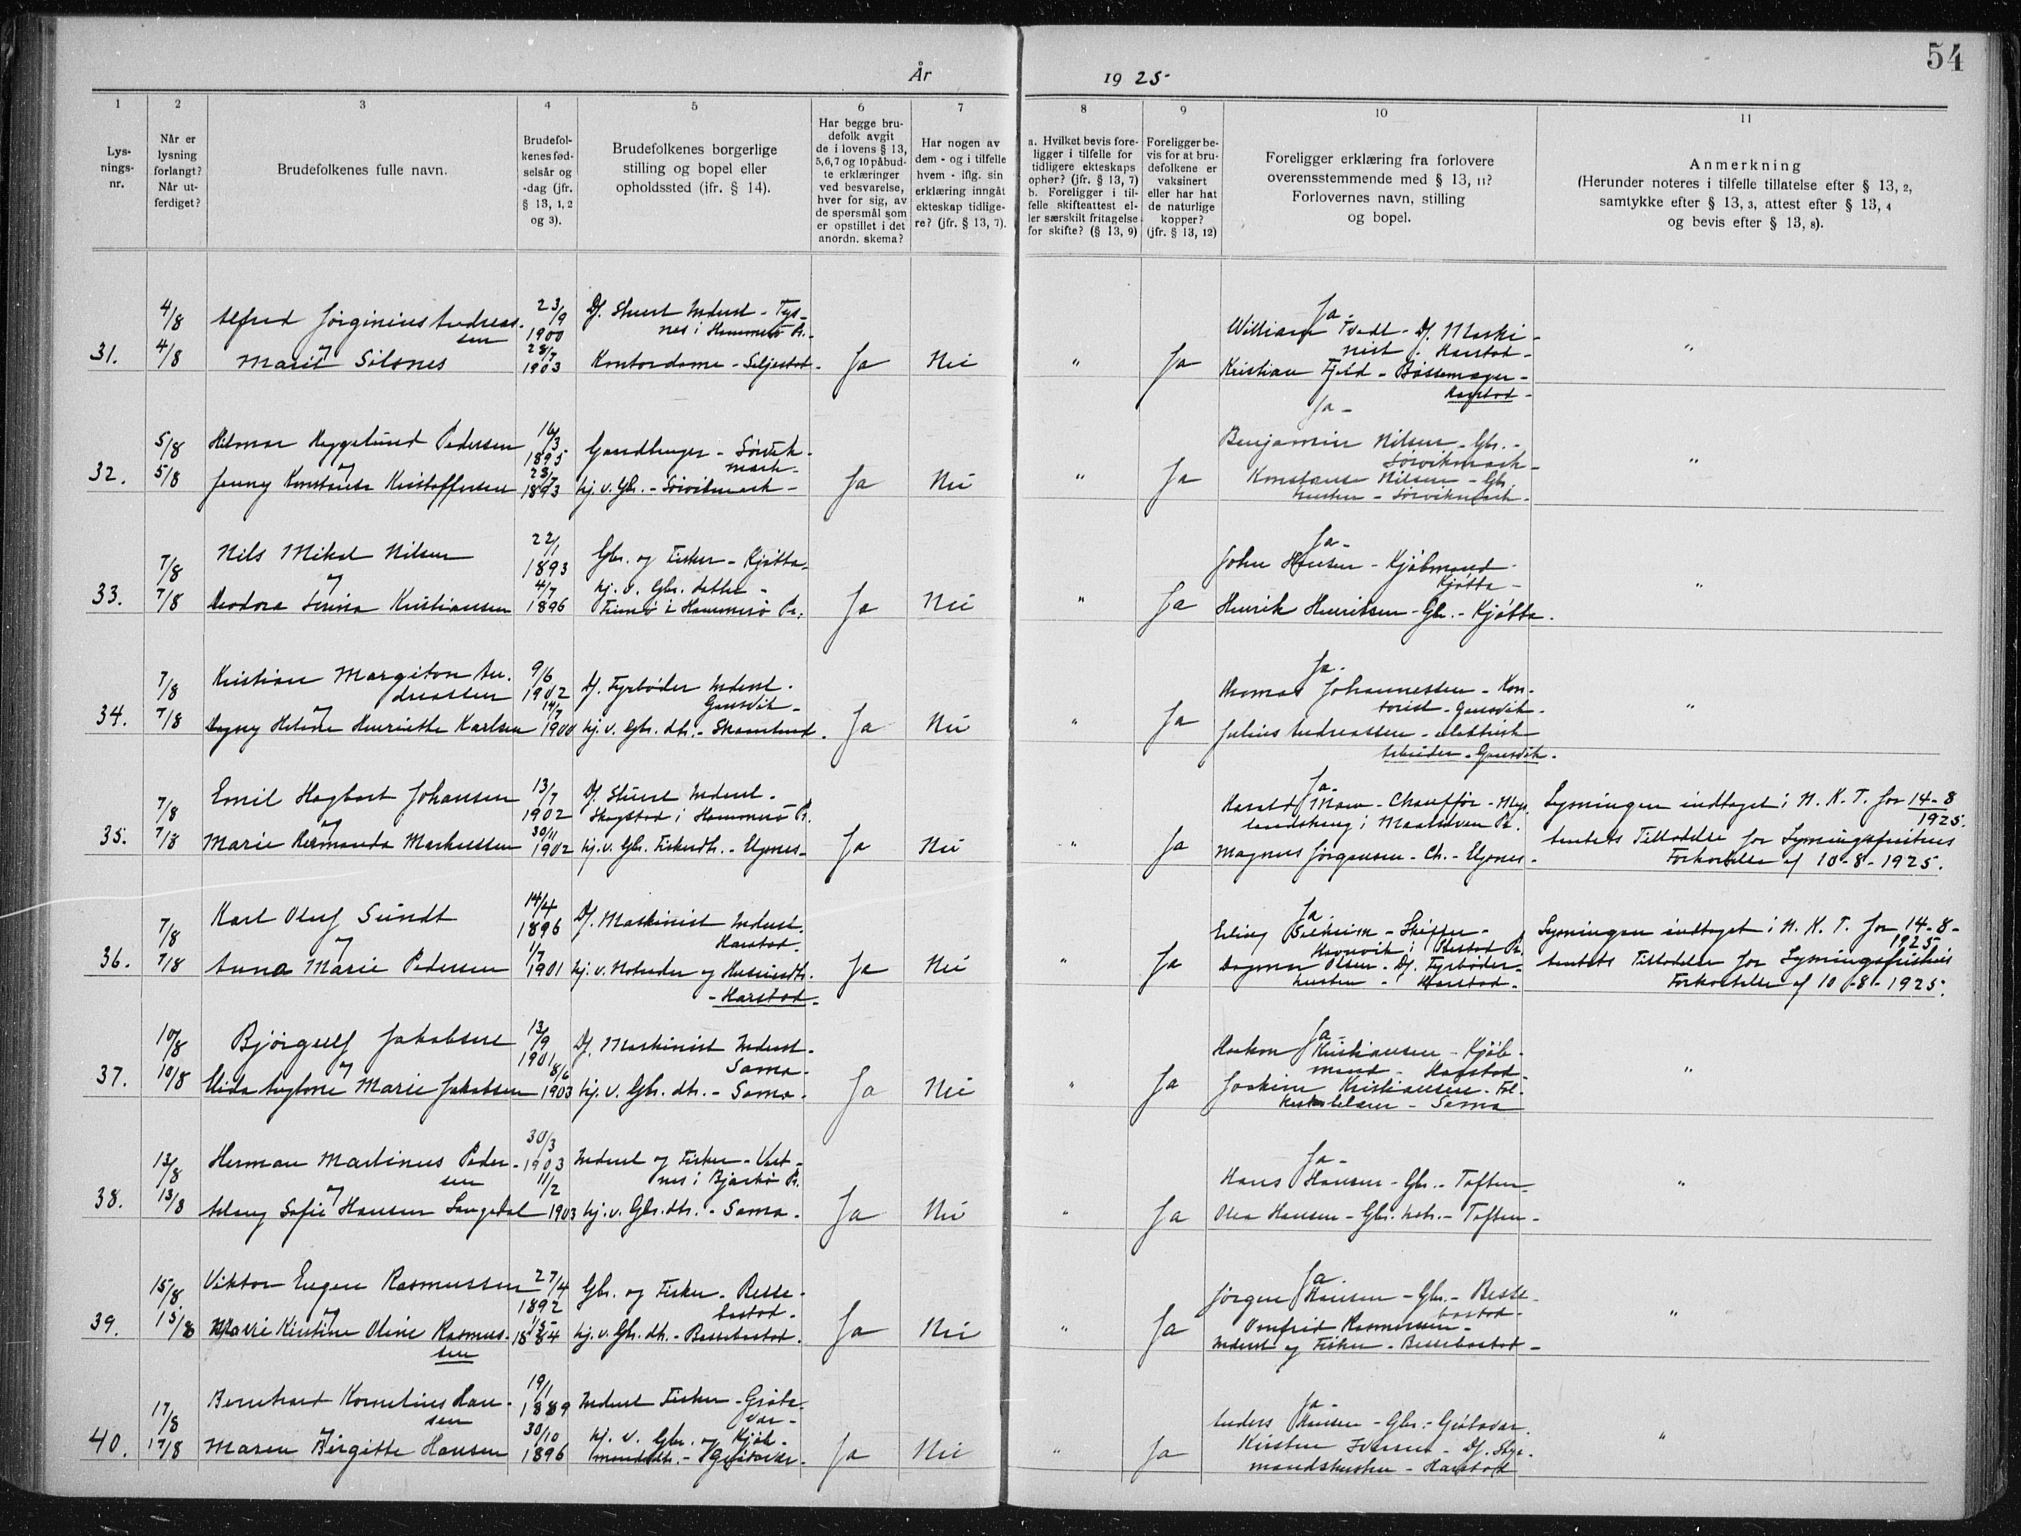 54
År 1925
1 2 3 4 5 6 7 8 9 10 11
Lys-
nings-
nr.
Når er
lysning
forlangt?
Når ut-
ferdiget?
Brudefolkenes fulle navn.
Brudefol-
kenes fød-
selsår og
-dag (jfr.
§ 13, 1, 2
og 3).
Brudefolkenes borgerlige
stilling og bopel eller
opholdssted (ifr. § 14).
Har begge bru-
defolk avgit
de i lovens § 13,
5, 6, 7 og 10 påbud-
te erklæringer
ved besvarelse,
hver for sig, av
de spørsmål som
er opstillet i det
anordn. skema?
Har nogen av
dem - og i tilfelle
hvem - iflg. sin
erklæring inngått
ekteskap tidlige-
re? (jfr. § 13, 7).
a. Hvilket bevis fore-
ligger i tilfelle for
tidligere ekteskaps
ophør? (jfr. § 13, 7)
b. Foreligger i til-
felle skifteattest el-
ler særskilt fritagelse
for skifte? (§ 13, 9)
Foreligger be-
vis for at bru-
defolkene er
vaksinert
eller har hat
de naturlige
kopper?
(jfr. § 13, 12)
Foreligger erklæring fra forlovere
overensstemmende med § 13, 11?
Forlovernes navn, stilling
og bopel.
Anmerkning
(Herunder noteres i tilfelle tillatelse efter § 13, 2,
samtykke efter § 13, 3, attest efter § 13, 4
og bevis efter § 13, 8).
31.
4/8
4/8
Alfred Jørginius Andreas-
sen
og
Marit Silsnes
23/9
1900
28/7
1903
Df. Stuert Inderst - Tys-
nes i Hammerø Pr. -
Kontordame - Seljestad -
Ja
Nei
"
Ja
Ja -
William Tvedt - Df. Maski-
nist - Harstad -
Kristian Fjeld - Bøssemager -
Harstad -
"
32.
5/8
5/8
Hilmar Heggelund Pedersen
og
Jenny Konstanse Kristoffersen
16/3
1895
23/7
1893
Gaardbruger - Sørvik-
mark -
hj. v. Gbr. - Sørvikmark -
Ja
Nei
"
Ja
Ja -
Benjamin Nilsen - Gbr. -
Sørvikmark -
Konstanse Nilsen - Gbr.
hustru - Sørvikmark -
"
33.
7/8
7/8
Nils Mikal Nilsen
og
Deodora Serina Kristiansen
22/1
1893
4/7
1896
Gbr. og Fisker - Kjøtta -
hj. v. Gbr. datter -
Finnø i Hammerø Pr.
Ja
Nei
"
Ja
Ja -
John Hansen - Kjøbmand -
Kjøtta -
Henrik Henriksen - Gbr. - Kjøtta.
"
34.
7/8
7/8
Kristian Margiton An-
dreassen
og
Dagny Helene Henriette Karlsen
9/6
1902
14/7
1900
Df. Fyrbøder Inderst -
Gansvik -
hj. v. Gbr. dtr. - Skaanland.
Ja
Nei
"
Ja
Ja -
Thomas Johannessen - Kon-
torist - Gansvik -
Julius Andreassen - elektrisk
arbeider - Gansvik.
"
35.
7/8
7/8
Emil Hagbart Johansen
og
Marie Hermanda Markussen
13/7
1902
30/11
1902
Df. Stuert Inderst -
Skogstad i Hammerø Pr.
hj. v. Gbr. Fiskerdtr. - Elgsnes -
Ja
Nei
"
Ja
Ja -
Harald Moen - Chauffør -
i Maalselven Pr.
Magnus Jørgensen - Elgsnes -
Lysningen indtaget i N. K. T. for 14-8
1925.
Amtets Tilladelse for Lysningsfristens
Forkortelse af 10-8-1925.
36.
7/8
7/8
Karl Oluf Sundt
og
Anna Marie Pedersen
14/4
1896
1/7
1901
Df. Maskinist Inderst.
Harstad -
hj. v. Notseder og Husmandsdtr.
- Harstad -
Ja
Nei
"
Ja
Ja -
Erling Selheim - Skipper -
Havnvik i Ibestad Pr.
Dagmar Olsen - Df. Fyrbøder-
hustru - Harstad -
Lysningen indtaget i N. K. T. for 14-8-
1925
Amtets Tilladelse for Lysningsfristens
Forkortelse af 10-8-1925.
37.
10/8
10/8
Bjørgulf Jakobsen
og
Marie Jakobsen
13/9
1901
8/6
1903
Df. Maskinist Inderst -
Sama -
hj. v. Gbr. dtr. - Sama -
Ja
Nei
"
Ja
Ja -
Haakon Kristiansen - Kjøb-
mand - Harstad -
Joakim Kristiansen -
Sama
"
38.
13/8
13/8
Herman Martinus Peder-
sen
og
Aslaug Sofie Hansen Langedal
30/3
1903
11/2
1903
Inderst og Fisker - Vest-
nes i Bjarkø Pr.
hj. v. Gbr. dtr. - Sama -
Ja
Nei
"
Ja
Ja -
Hans Hansen - Gbr. - Toften -
Olea Hansen - Gbr. hstr. - Toften -
"
39.
15/8
15/8
Viktor Eugen Rasmussen
og
Marie Kirstine Oline Rasmus-
sen
27/4
1892
Gbr. og Fisker - Besse-
bostad -
hj. v. Gbr. dtr. - Bessebostad -
Ja
Nei
"
Ja
Ja -
Jørgen Hansen - Gbr. - Besse-
bostad -
Rasmussen -
Inderst og Fisker - Bessebostad -
"
40.
17/8
17/8
Bernhard Kornelius Han-
sen
og
Maren Birgitte Hansen
19/1
1889
30/10
1896
Inderst Fisker - Grøta-
var -
hj. v. Gbr. og Kjøb-
mandsdtr. - Grøtavær -
Ja
Nei
"
Ja
Ja -
Anders Hansen - Gbr. - Grøtavar.
Kirsten Iversen - Df. Styr-
mandshustru - Harstad
"